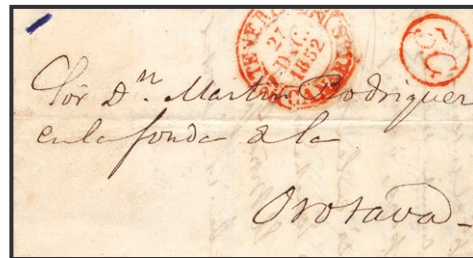 27
DIC
1852
5C
Sor Dn. Martin Rodriguez
en la fonda de la
Orotava-